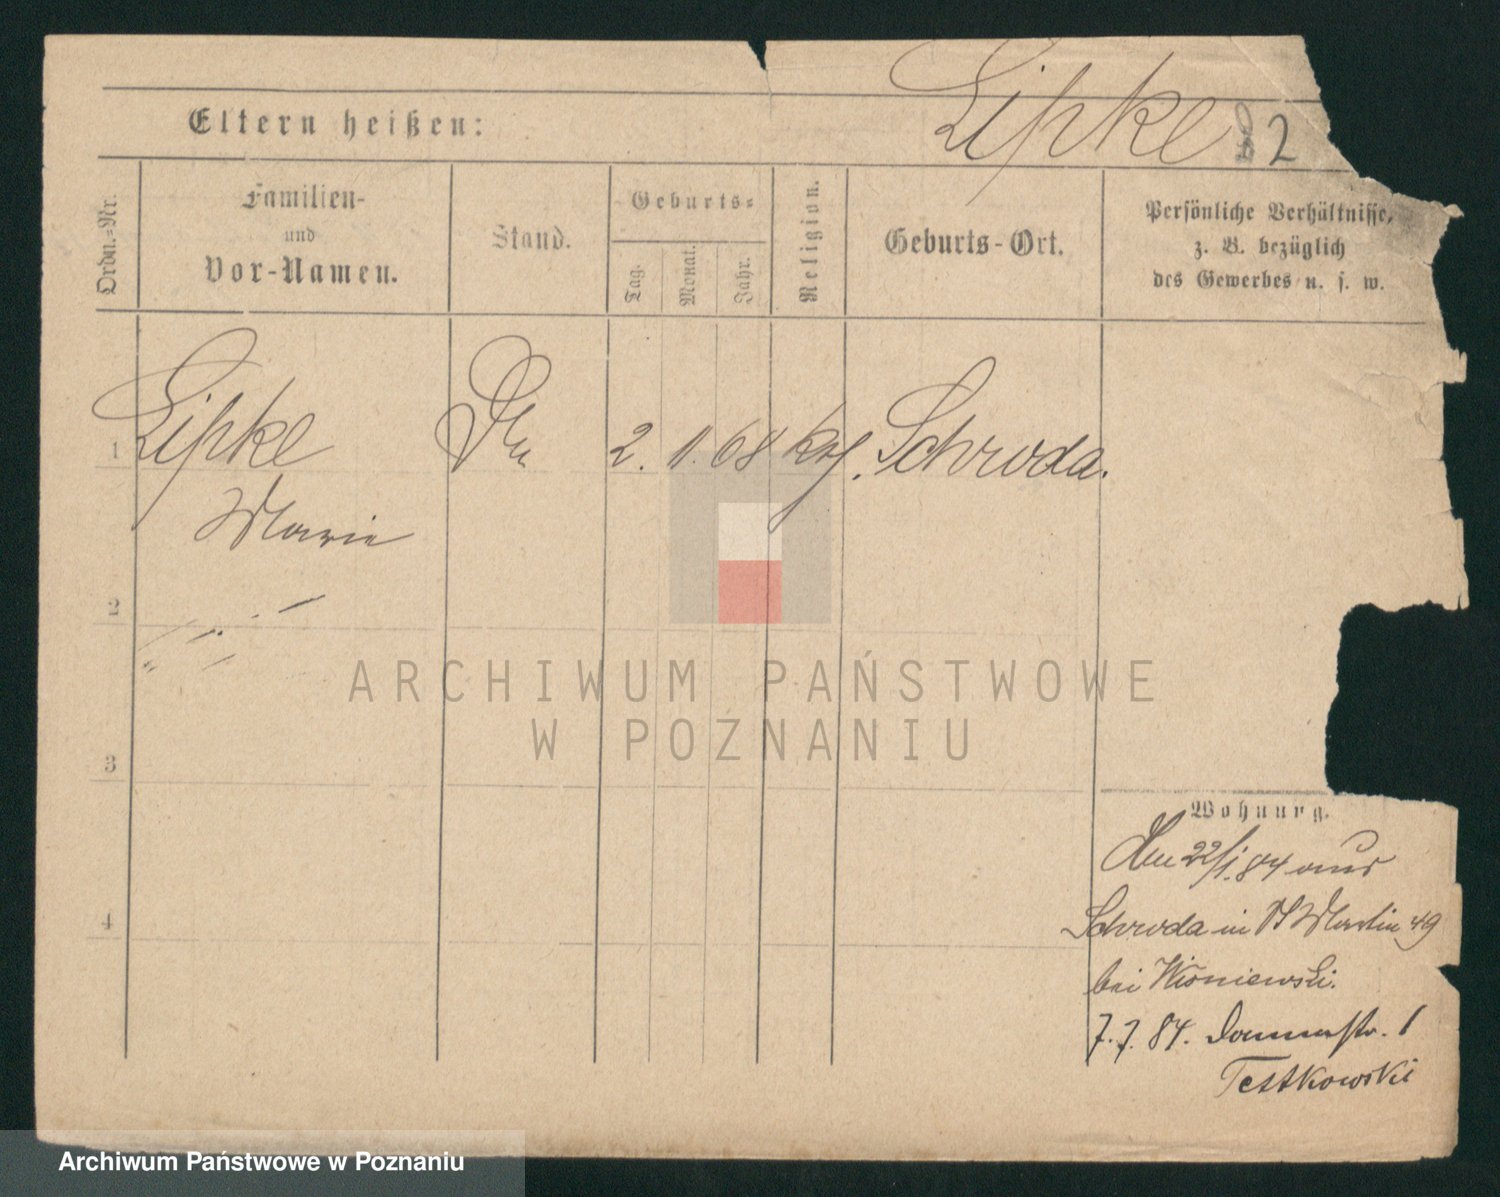 Lipke 2
Eltern heißen:
Ordn.=Nr.
Familien-
und
Vor-Namen.
Stand.
Geburts=
Tag.
Monat.
Jahr.
Religion.
Geburts-Ort.
Persönliche Verhältnisse,
z. B. bezüglich
des Gewerbes u. s. w.
1 Lipke 2. 11. 68 Schroda.
Marie
2
3
4
ARCHIWUM PAŃSTWOWE
W POZNANIU
Wohnung.
Den 22/1.84 aus
Schroda in St Martin 49
bei Wisniewski.
7.7.84. Dammstr. 1
Tettkowski
Archiwum Państwowe w Poznaniu